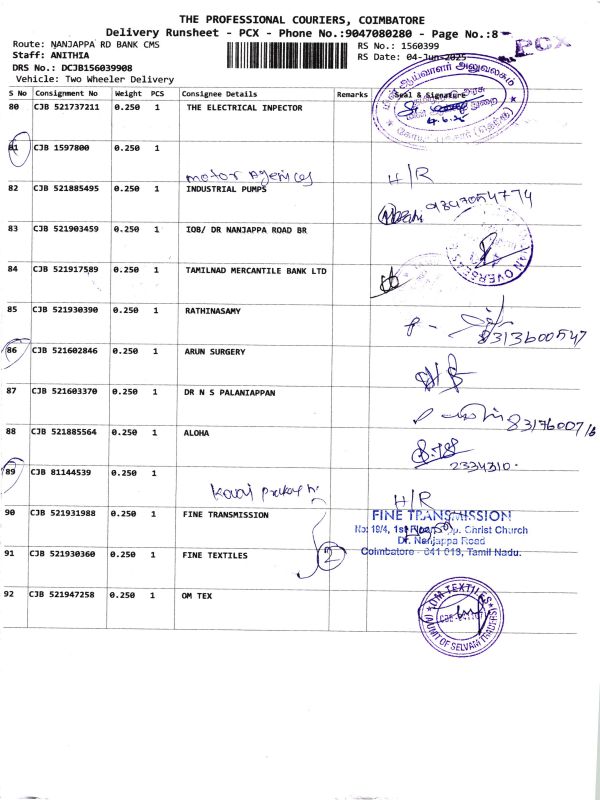 THE PROFESSIONAL COURIERS, COIMBATORE
Delivery Runsheet - PCX - Phone No.:9047080280 - Page No.:8
PCX
Route: NANJAPPA RD BANK CMS
RS No.: 1560399
Staff: ANITHIA
RS Date: 04-Jun-2025
DRS No.: DCJB156039908
Vehicle: Two Wheeler Delivery
S No Consignment No Weight PCS Consignee Details Remarks Seal & Signature
80 CJB 521737211 0.250 1 THE ELECTRICAL INPECTOR
81 CJB 1597800 0.250 1
motor Agencies H/R
82 CJB 521885495 0.250 1 INDUSTRIAL PUMPS
9847054774
83 CJB 521903459 0.250 1 IOB/ DR NANJAPPA ROAD BR
84 CJB 521917589 0.250 1 TAMILNAD MERCANTILE BANK LTD
85 CJB 521930390 0.250 1 RATHINASAMY
8313600547
86 CJB 521602846 0.250 1 ARUN SURGERY
87 CJB 521603370 0.250 1 DR N S PALANIAPPAN
88 CJB 521885564 0.250 1 ALOHA
2334310.
89 CJB 81144539 0.250 1
H/R
90 CJB 521931988 0.250 1 FINE TRANSMISSION
FINE TRANSMISSION
No: 19/4, 1st Floor, Opp. Christ Church
Dr. Nanjappa Road
Coimbatore - 641 018, Tamil Nadu.
91 CJB 521930360 0.250 1 FINE TEXTILES
2
92 CJB 521947258 0.250 1 OM TEX
OM TEXTILES
(A UNIT OF SELVAM TRADERS)